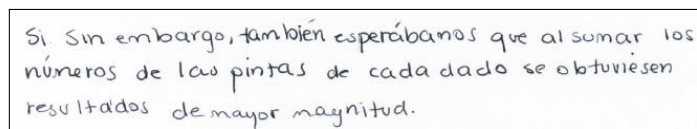 Si. Sin embargo, también esperábanos que al sumar los
números de las pintas de cada dado se obtuviesen
resultados de mayor magnitud.